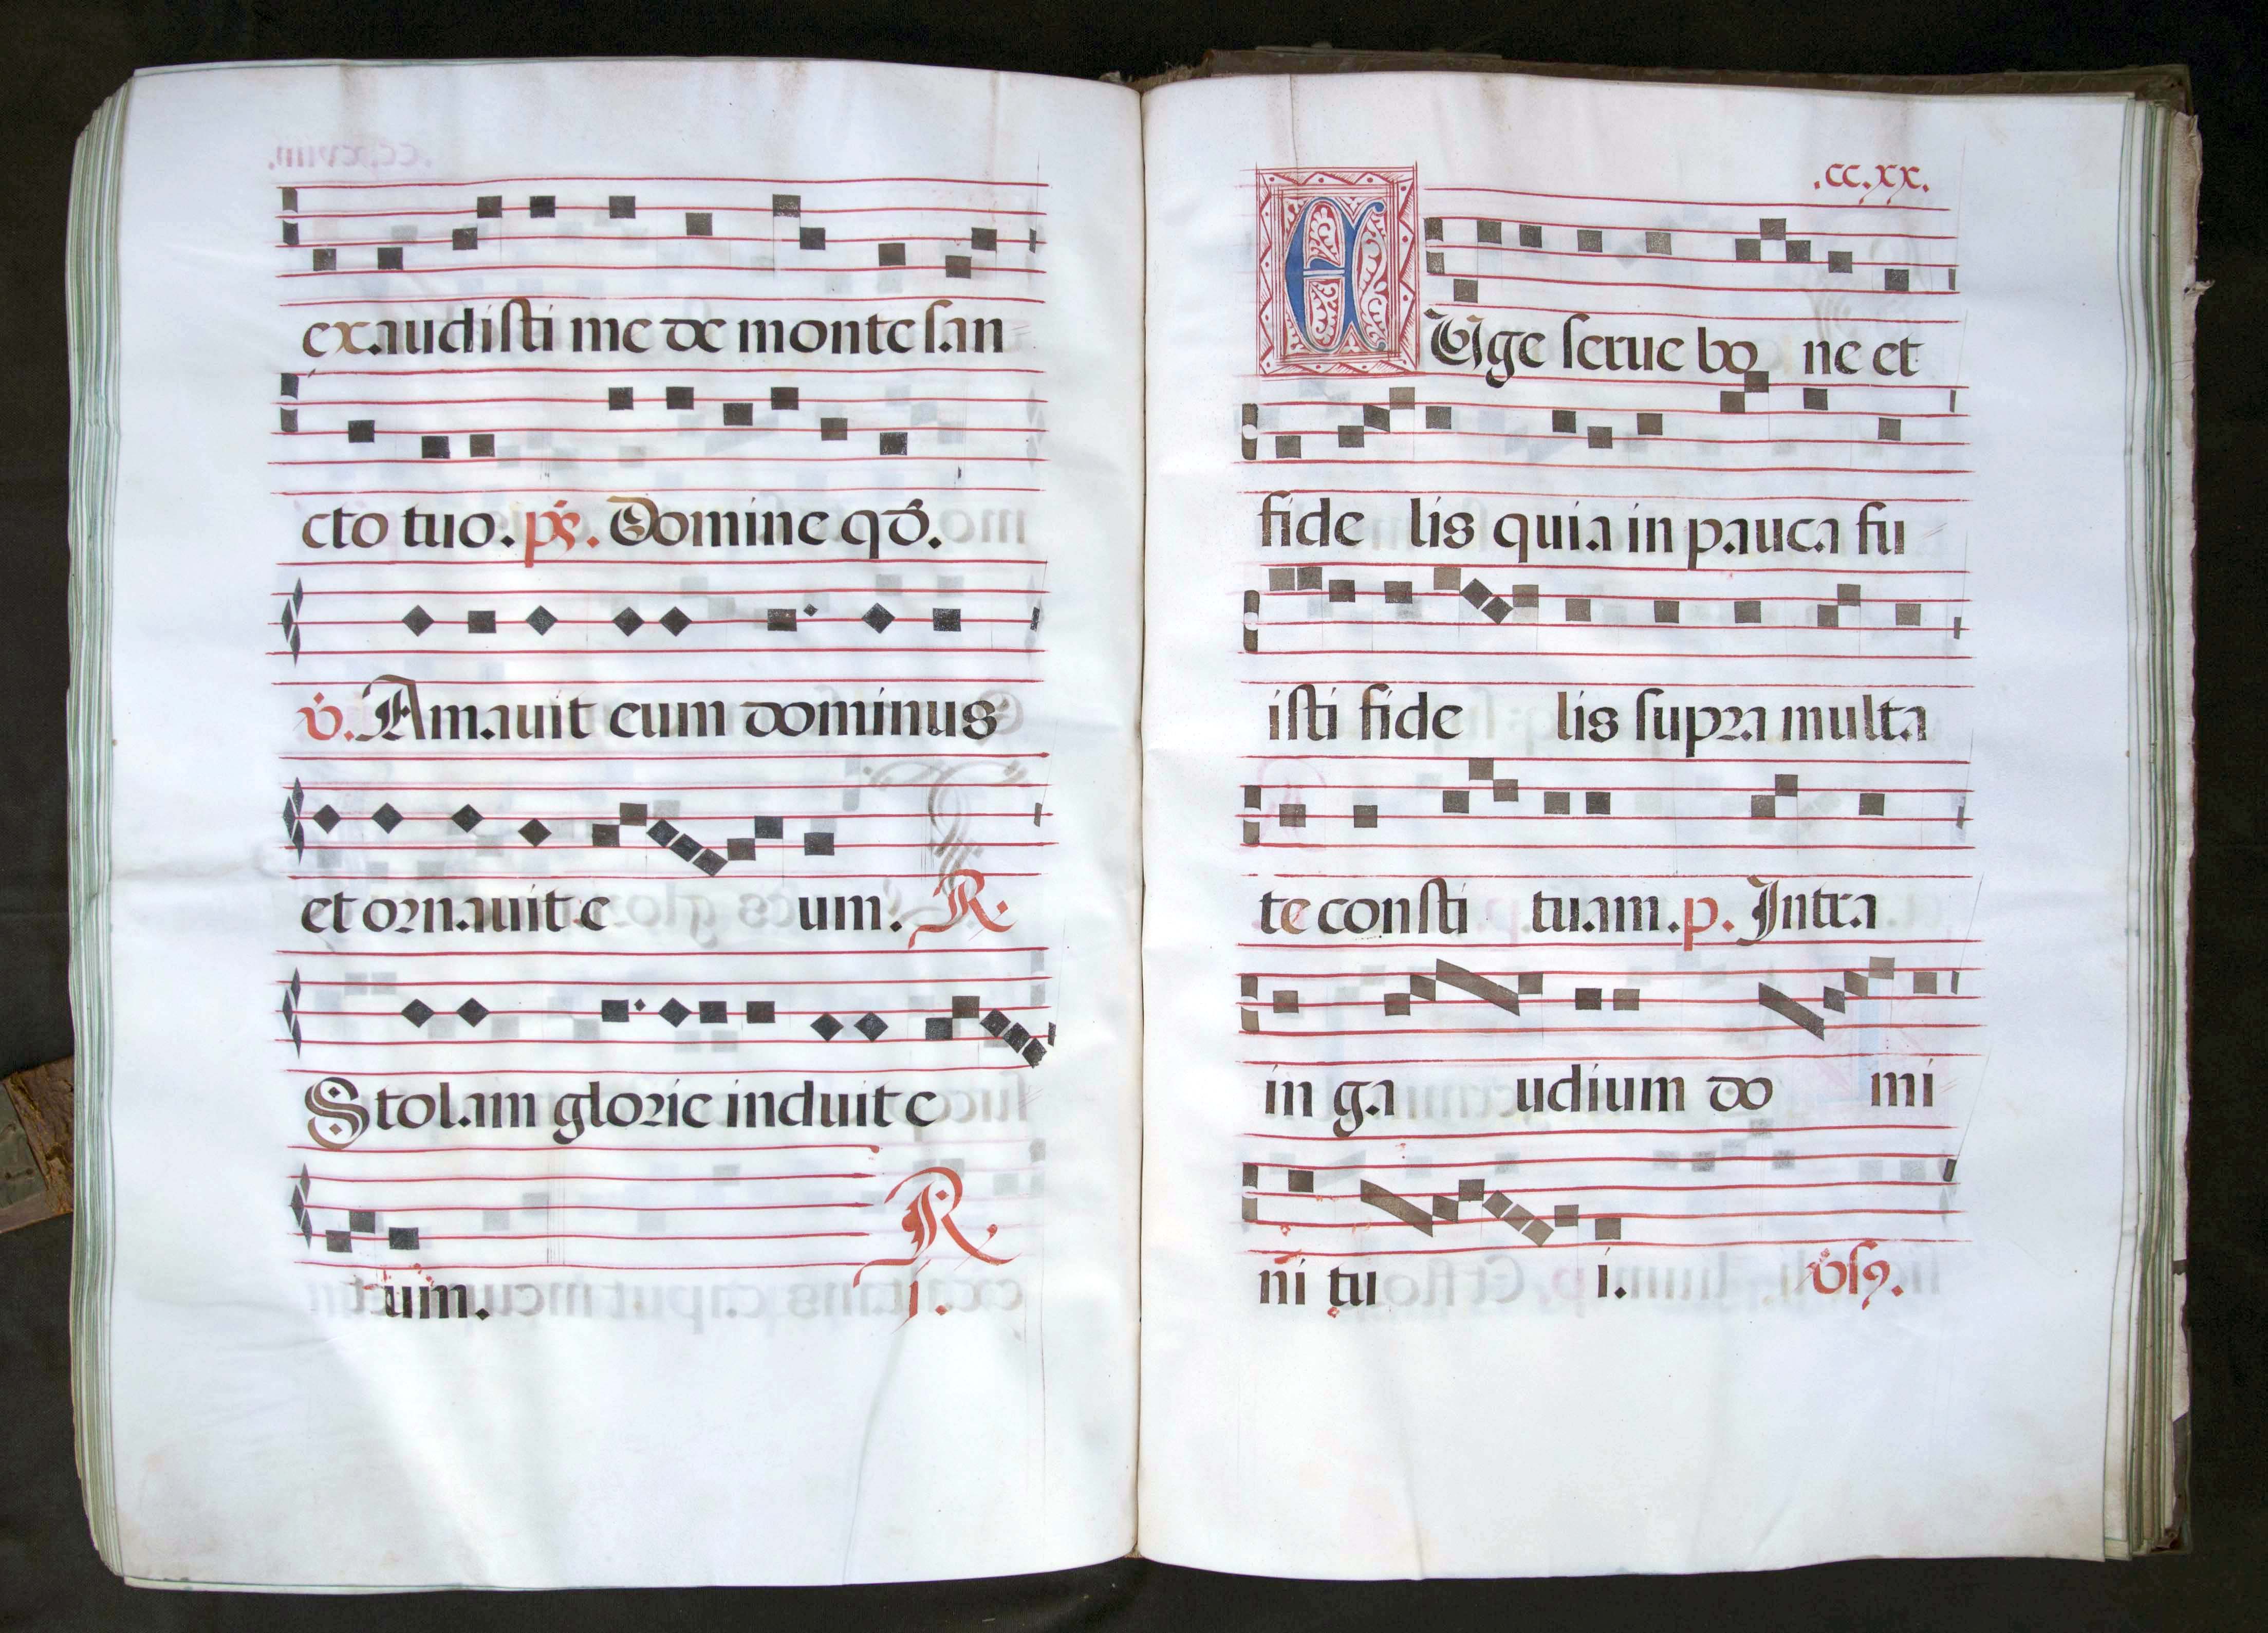 exaudisti me de monte san
cto tuo. ps. Domine qd.
v. Amauit eum dominus
et ornauit e um. R.
Stolam glorie induit e
um. R. j.
.cc.xx.
EUge serue bo ne et
fide lis quia in pauca fu
isti fide lis supra multa
te consti tuam. p. Intra
in ga udium do mi
ni tu i. vs9.